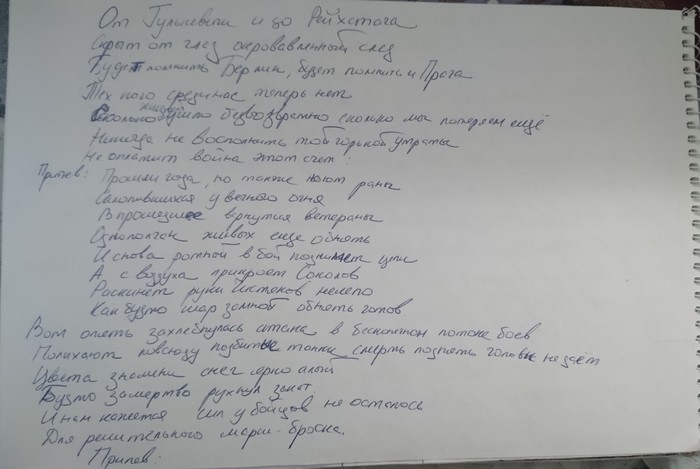 От Гулькевичи и до Рейхстага
Скрыт от глаз окровавленный след
Будет помнить Берлин, будет помнить и Прага
Тех кого среди нас теперь нет
Сколько жизней ушло безвозвратно сколько мы потеряем ещё
Никогда не восполнить той горькой утраты
Не оплатит война этот счет!
Припев: Прошли года, но также ноют раны
Склонившихся у вечного огня
В прошедшее вернутся ветераны
Однополчан живых еще обнять
И снова ротной в бой поднимет цепи
А с воздуха прикроет Соколов
Раскинет руки Чистяков нелепо
Как будто шар земной обнять готов
Вот опять захлебнулась атака в бесконечном потоке боев
Полыхают повсюду подбитые танки смерть поднять головы не даёт
Цвета знамени снег ярко алый
Будто замертво рухнул закат
И нам кажется сил у бойцов не осталось
Для решительного марш-броска.
Припев: